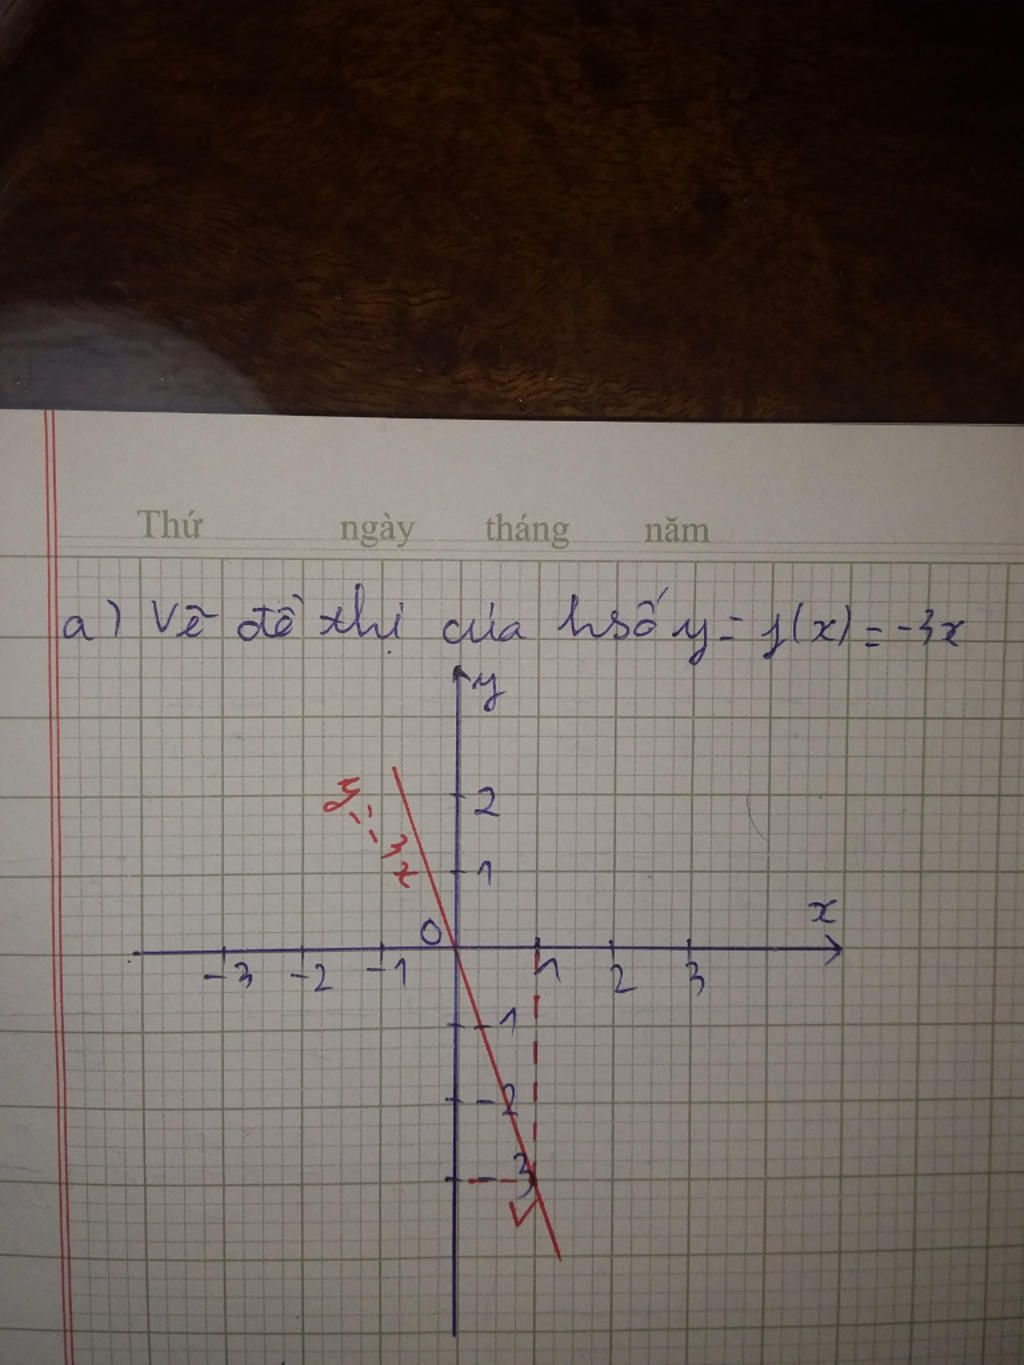 Thứ ngày tháng năm
a) Vẽ đồ thị của hsố y = f(x) = -3x
y
2
y = -3x
1
x
O
-3 -2 -1 1 2 3
-1
-2
-3